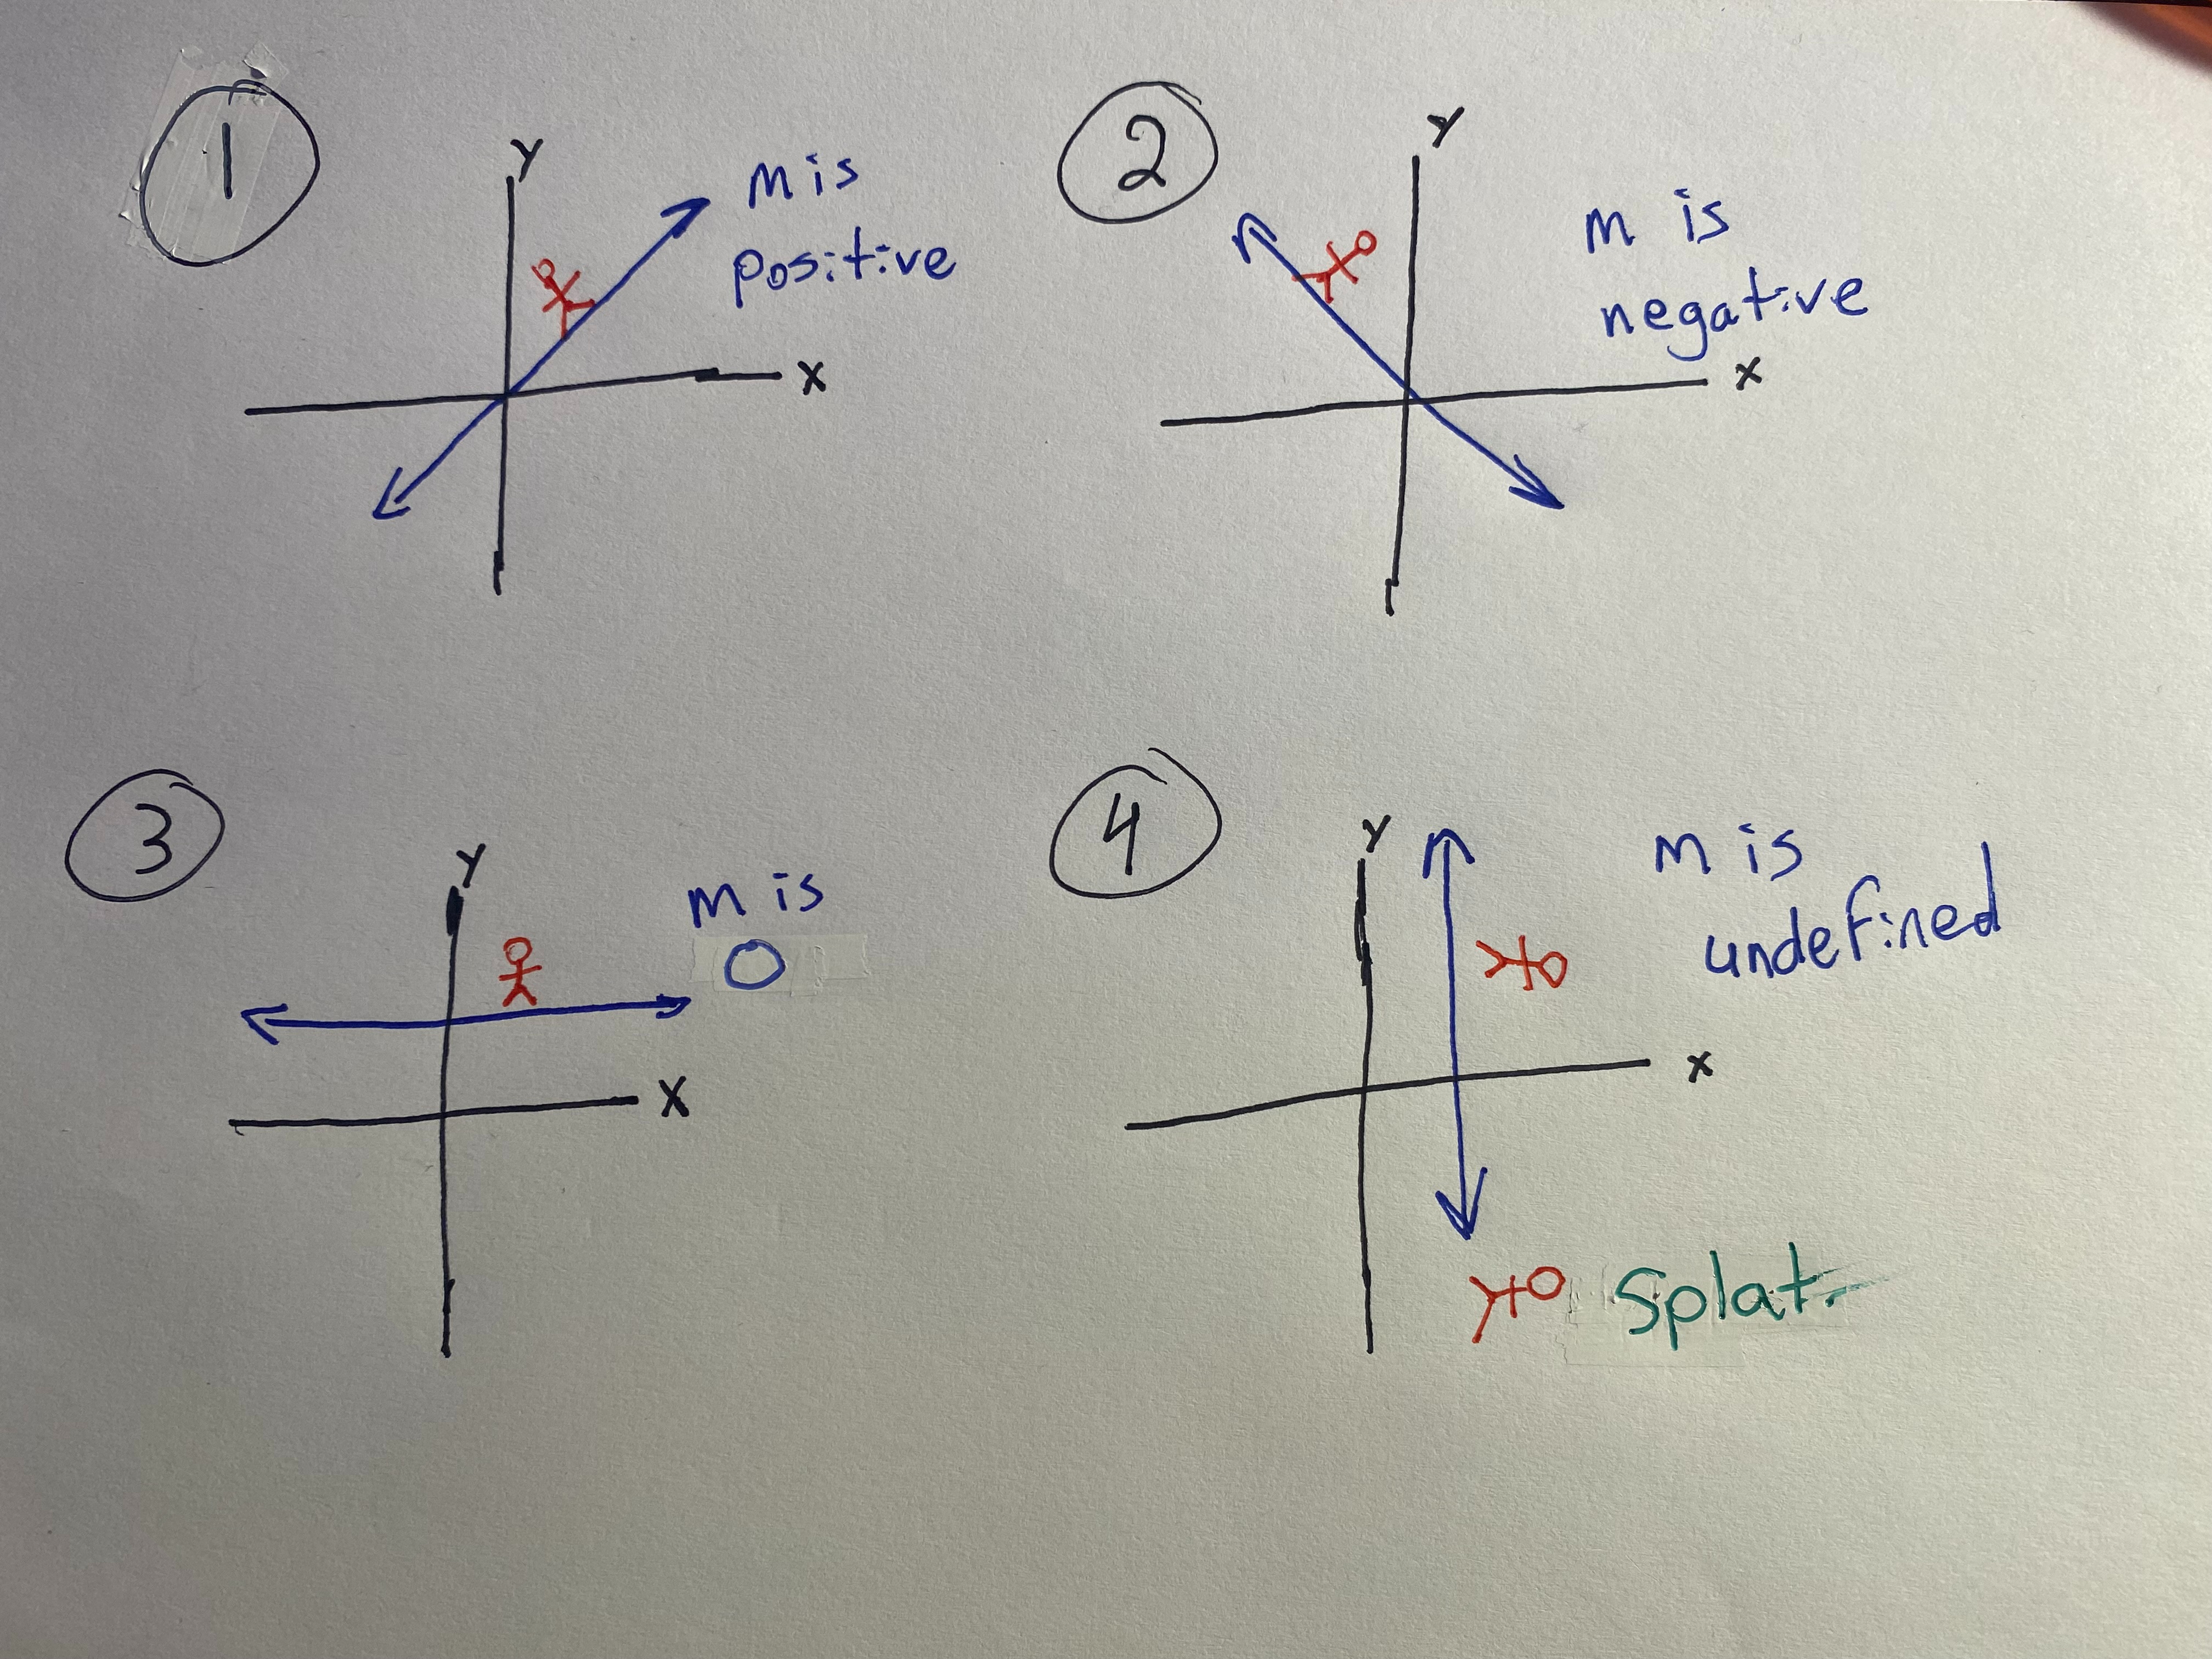 1
Y
m is
positive
X
2
Y
m is
negative
X
3
Y
m is
0
X
4
Y
m is
undefined
X
Splat.